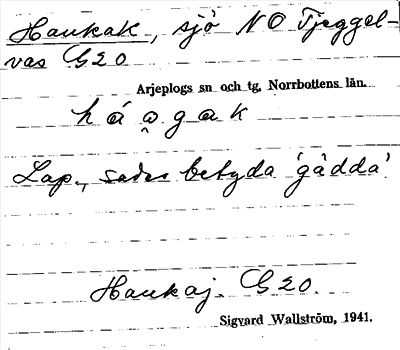 Haukak, sjö NO Tjeggel-
vas G20
Arjeplogs sn och tg, Norrbottens län.
háo̭gak
Lap., sades betyda 'gädda'.
Haukaj. G20.
Sigvard Wallström, 1941.